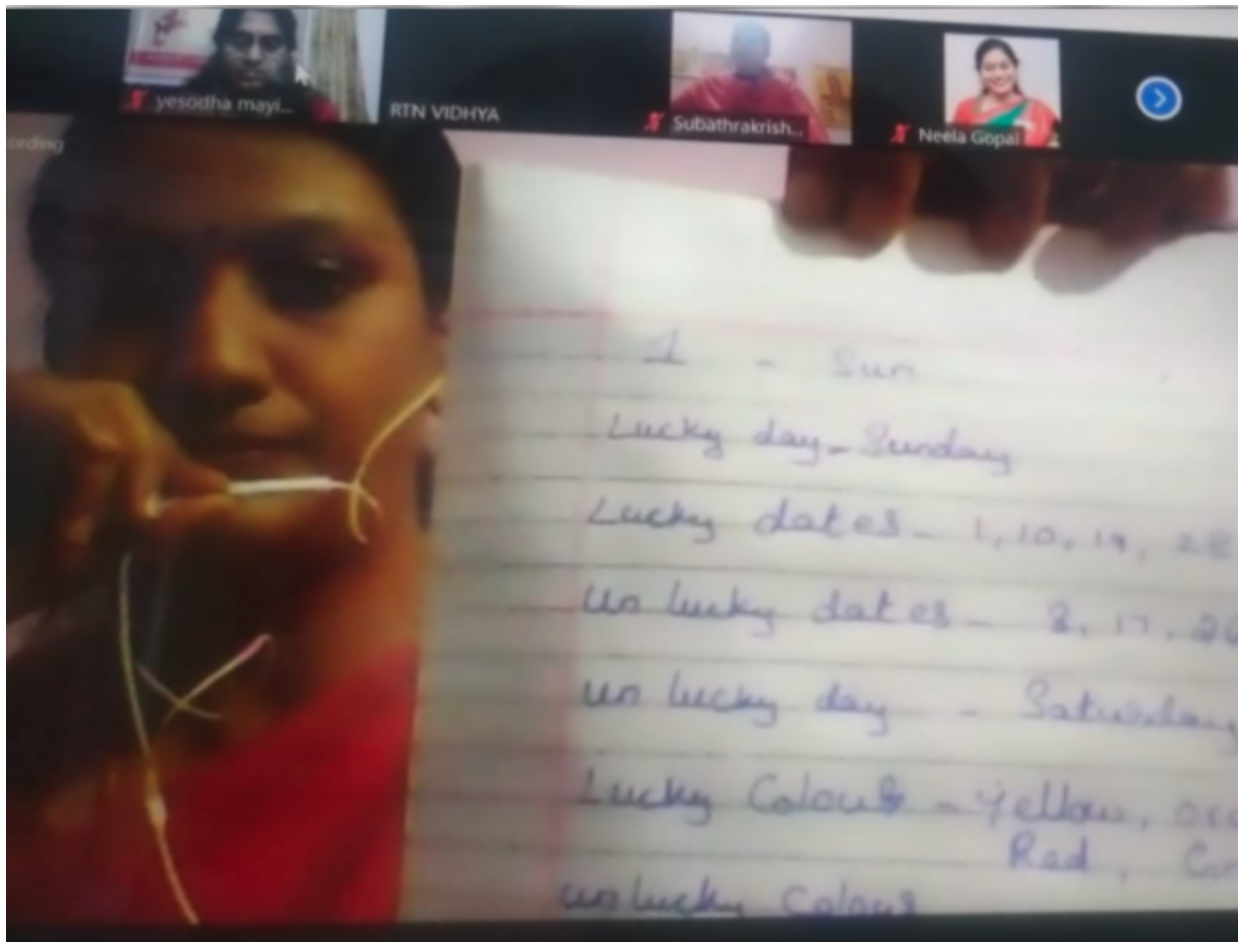 yesodha mayi...
RTN VIDHYA
Subathrakrish...
Neela Gopal
ording
1 - Sun
Lucky day - Sunday
Lucky dates - 1, 10, 19, 28
un lucky dates - 8, 17, 26
un lucky day - Saturday
Lucky Colour - Yellow,
Red,
un lucky Colour